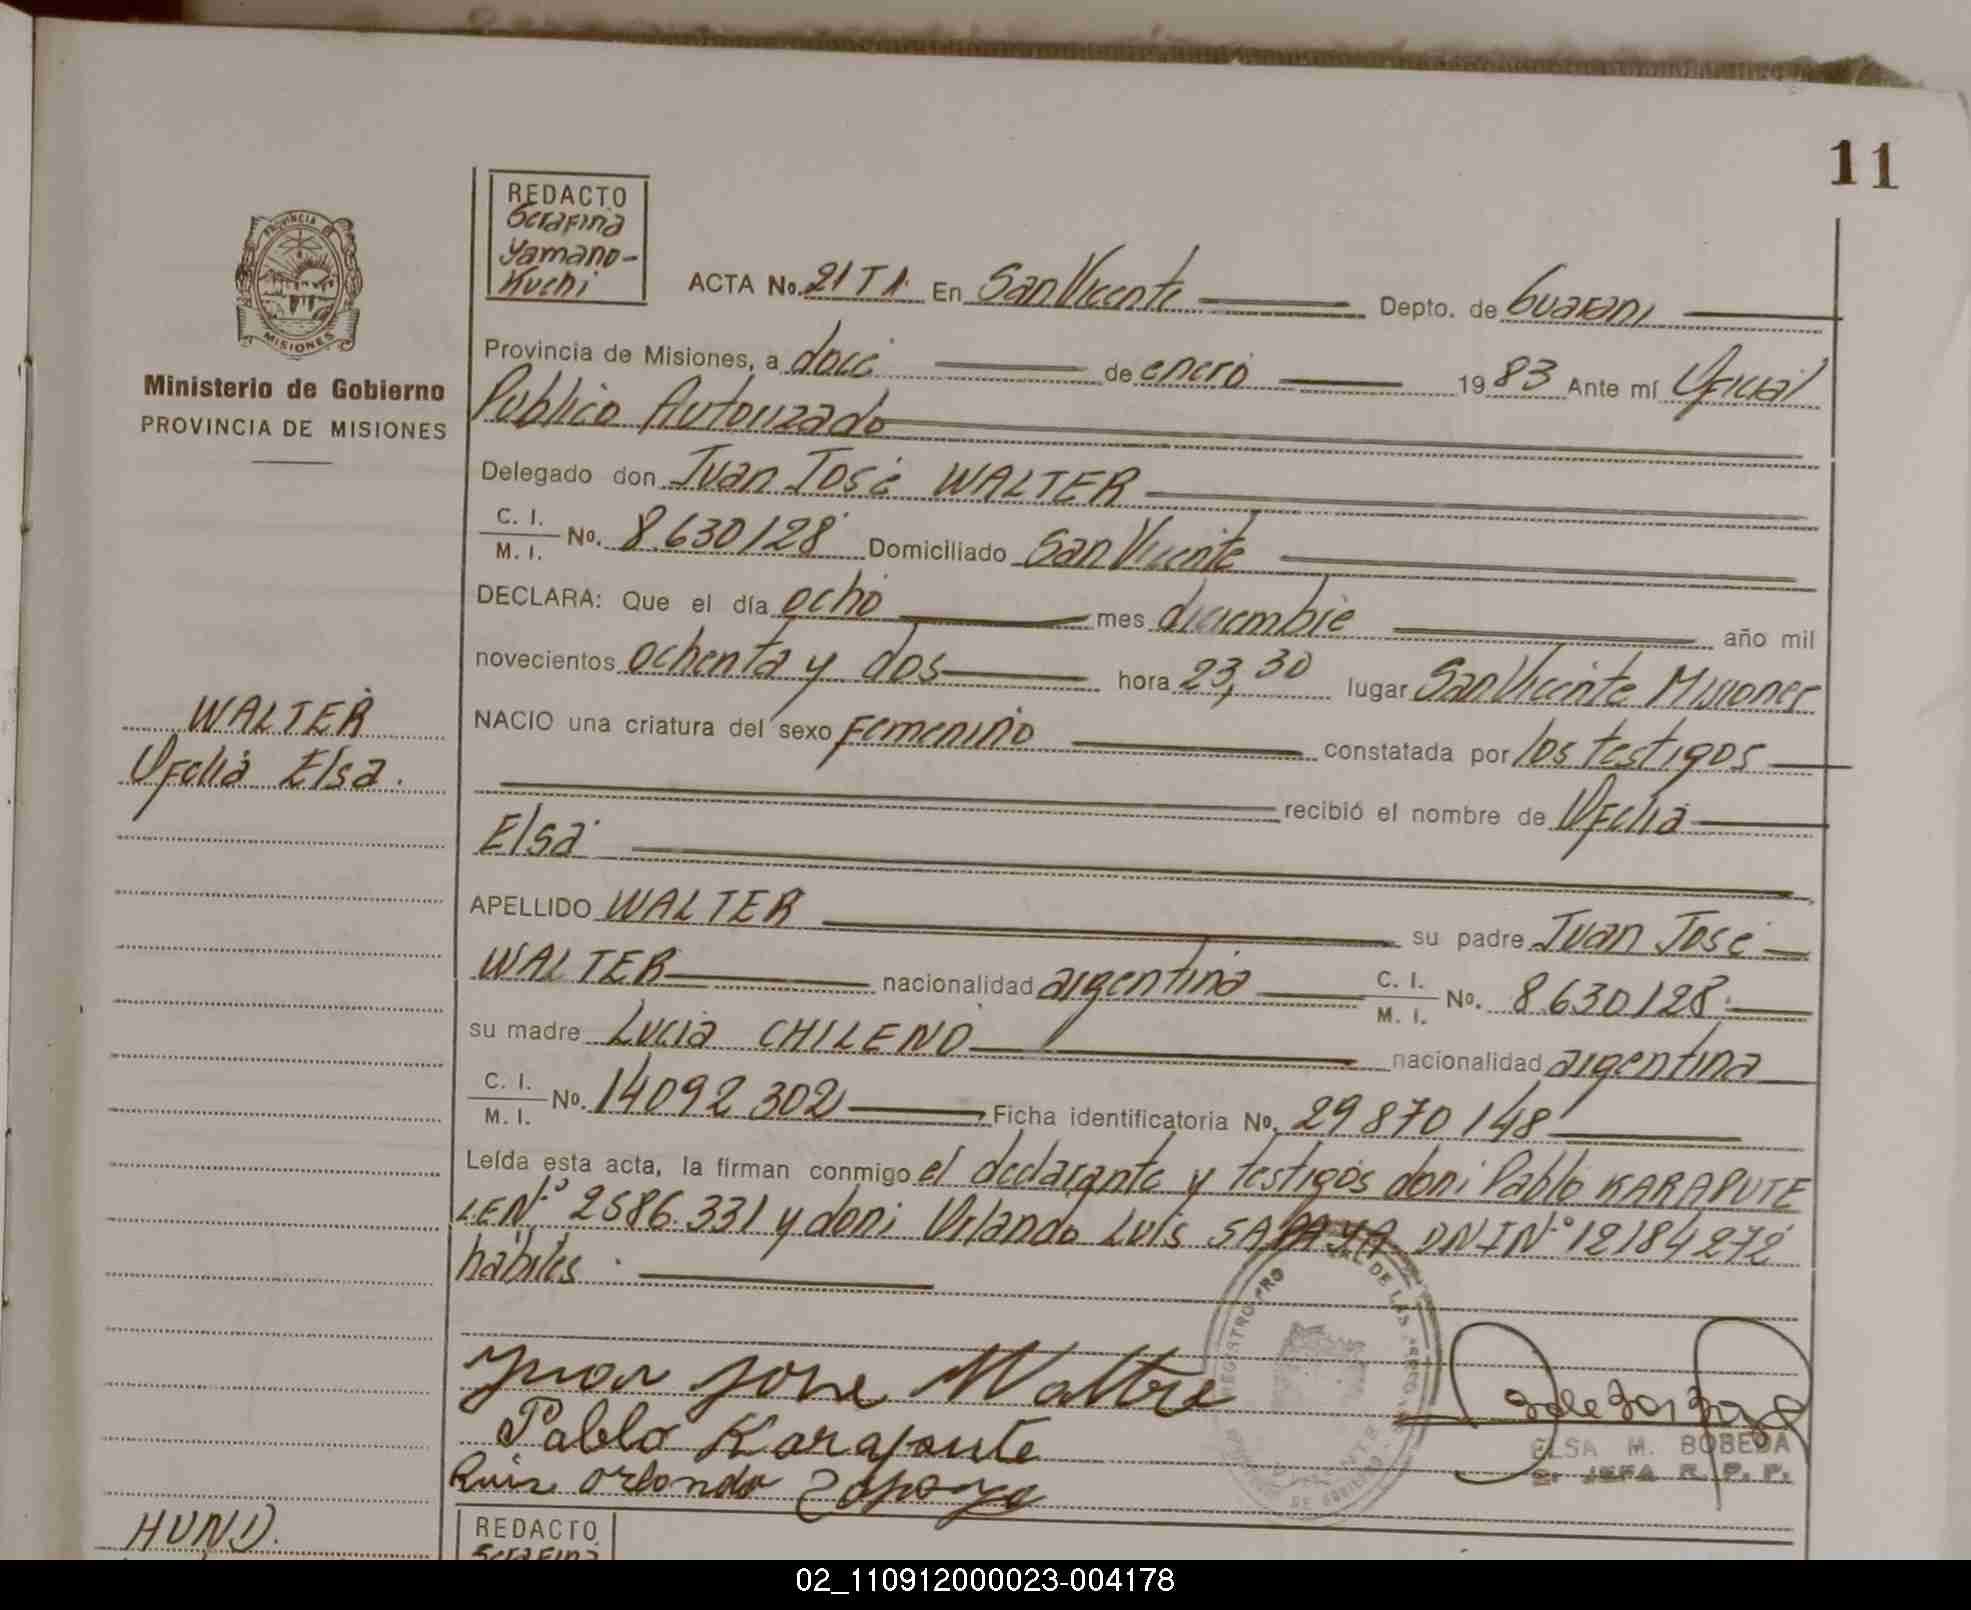 11
REDACTO
Serafina
Yamano-
Kuchi
ACTA No. 21 T1. En San Vicente Depto. de Guarani
PROVINCIA
MISIONES
Ministerio de Gobierno
PROVINCIA DE MISIONES
Provincia de Misiones, a doce de enero 1983 Ante mí Oficial
Público Autorizado
Delegado don Juan José WALTER
C. I.
M. I. No. 8.630128 Domiciliado San Vicente
DECLARA: Que el día ocho mes diciembre año mil
novecientos ochenta y dos hora 23,30 lugar San Vicente Misiones
WALTER
Ofelia Elsa.
NACIO una criatura del sexo femenino constatada por los testigos
recibió el nombre de Ofelia
Elsa
APELLIDO WALTER su padre Juan José
WALTER nacionalidad argentina C. I.
M. I. No. 8.630128.
su madre Lucia CHILENO nacionalidad argentina
C. I.
M. I. No. 14092302 Ficha identificatoria No. 29870148
Leída esta acta, la firman conmigo el declarante y testigos don: Pablo KARAPUTE
LEN° 2586.331 y don: Orlando Luis SAPAYA DNI N° 12184272
hábiles.
Juan Jose Waltre
Pablo Karapute
Luis Orlando Zapaya
ELSA M. BOBEDA
JEFA R. P. P.
HUND.
REDACTO
Serafina
02_110912000023-004178